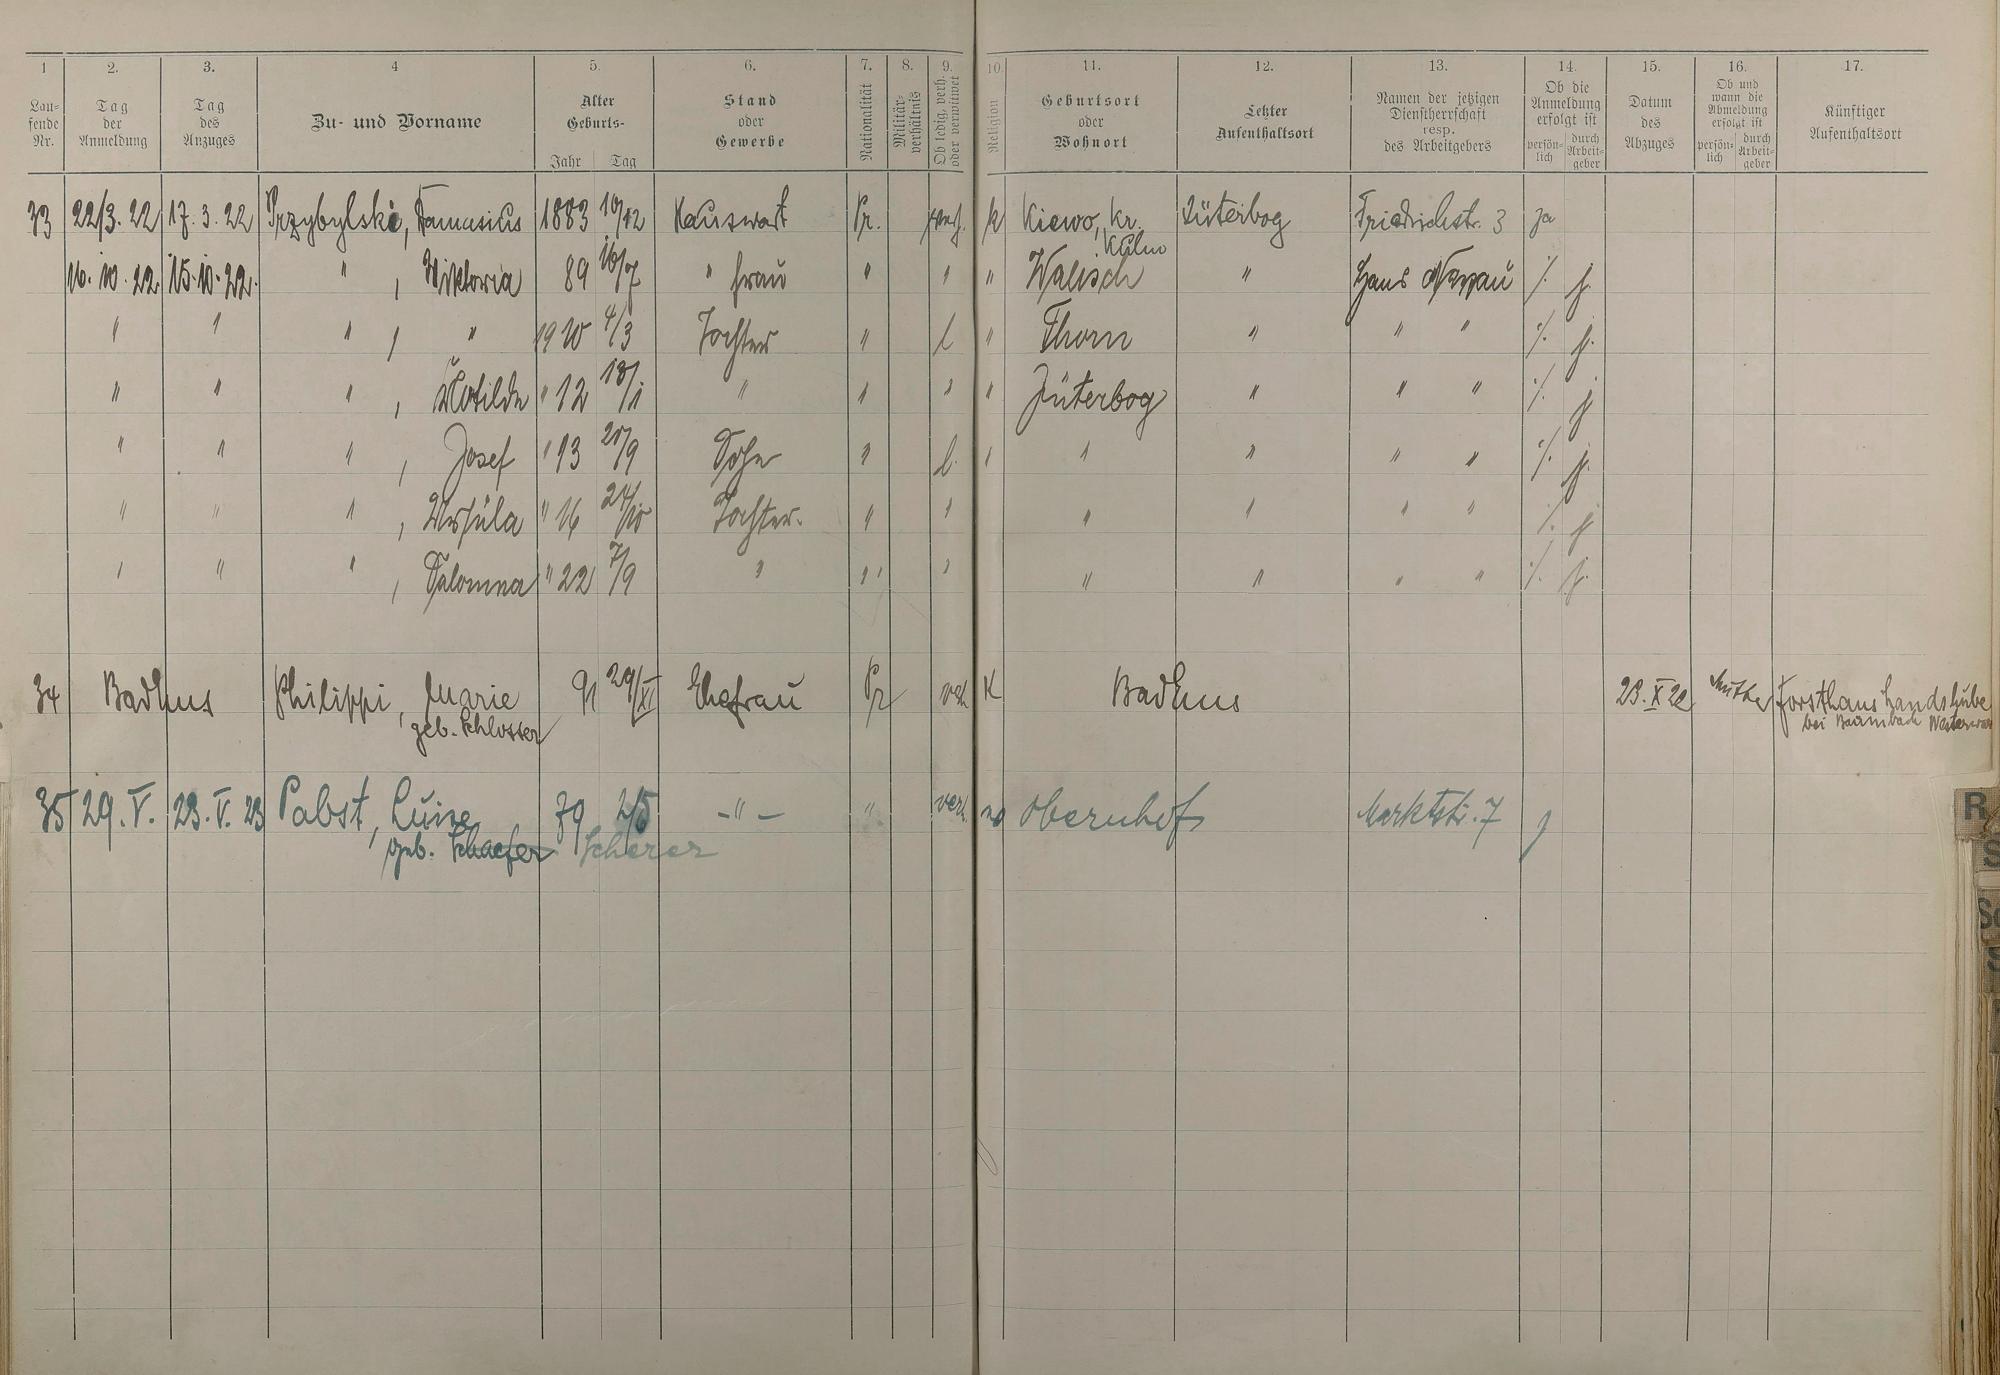 1 2. 3. 4 5. 6. 7. 8. 9. 10. 11. 12. 13. 14. 15. 16. 17.
Lau-
fende
Nr.
Tag
der
Anmeldung
Tag
des
Anzuges
Zu- und Vorname
Alter
Geburts-
Jahr Tag
Stand
oder
Gewerbe
Nationalität
Militär-
verhältnis
Ob ledig, verh.
oder verwitwet
Religion
Geburtsort
oder
Wohnort
Letzter
Aufenthaltsort
Namen der jetzigen
Dienstherrschaft
resp.
des Arbeitgebers
Ob die
Anmeldung
erfolgt ist
persön-
lich
durch
Arbeit-
geber
Datum
des
Abzuges
Ob und
wann die
Abmeldung
erfolgt ist
persön-
lich
durch
Arbeit-
geber
Künftiger
Aufenthaltsort
33 22/3. 22 17. 3. 22 Przybylski, 1883 10/12 Hauswart Pr. verh. k Kiewo, Kr. Jüterbog Friedrichstr. 3 ja
Kulm
16. 10. 22 15. 10. 22. " , Viktoria 89 16/7 " frau " " " Walisch " Haus Nassau ./. j.
" " " , " 1920 4/3 Tochter " l " Thorn " " " ./. j.
" " " , Klotilde " 12 13/1 " " " " Jüterbog " " " ./. j
" " " , Josef " 13 20/9 Sohn " l. " " " " " ./. j.
" " " , Ursula " 16 24/10 Tochter. " " " " " " ./. j
" " " , Salomea " 22 7/9 " " " " " " " ./. j.
34 BadEms Philippi, Marie 91 29/XI Ehefrau Pr verh K BadEms 23. X 22 Mutter Forsthaus Landshube
geb. Schlosser bei Baumbach Westerwald
35 29. V. 23. V. 23 Pabst, Luise 79 2/5 -"- " verh. Obernhof Marktstr. 7 j
geb. Schaefer Scherer
R
S
Sc
S